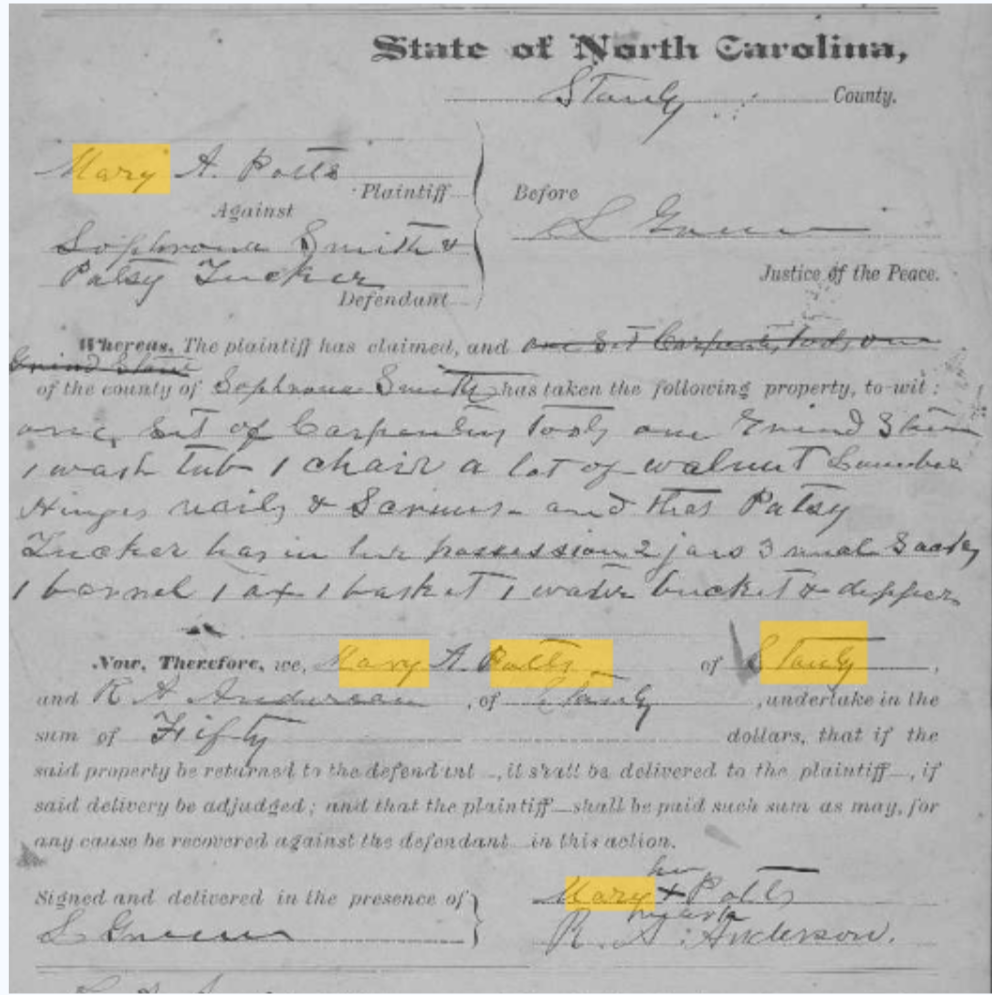 State of North Carolina,
Stanly County.
Mary A. Potts
Plaintiff
Against
Before
Sophrona Smith &
L Green
Patsy Tucker
Defendant
Justice of the Peace.
Whereas, The plaintiff has claimed, and one Set Carpenters Tools one
Grind Stone
of the county of Sophrona Smith has taken the following property, to-wit:
one Set of Carpenters Tools one Grind Stone
1 wash Tub 1 chair a lot of walnut Lumber
Hinges nails & Scrius and that Patsy
Tucker has in her possession 2 jars 3 meal Sacks
1 barrel 1 ax 1 basket 1 water bucket & dipper
Now, Therefore, we, Mary A. Potts of Stanly,
and R A Anderson, of Stanly, undertake in the
sum of Fifty dollars, that if the
said property be returned to the defendant, it shall be delivered to the plaintiff, if
said delivery be adjudged; and that the plaintiff shall be paid such sum as may, for
any cause be recovered against the defendant in this action.
her
Signed and delivered in the presence of Mary + Potts
mark
L Green R. A. Anderson.